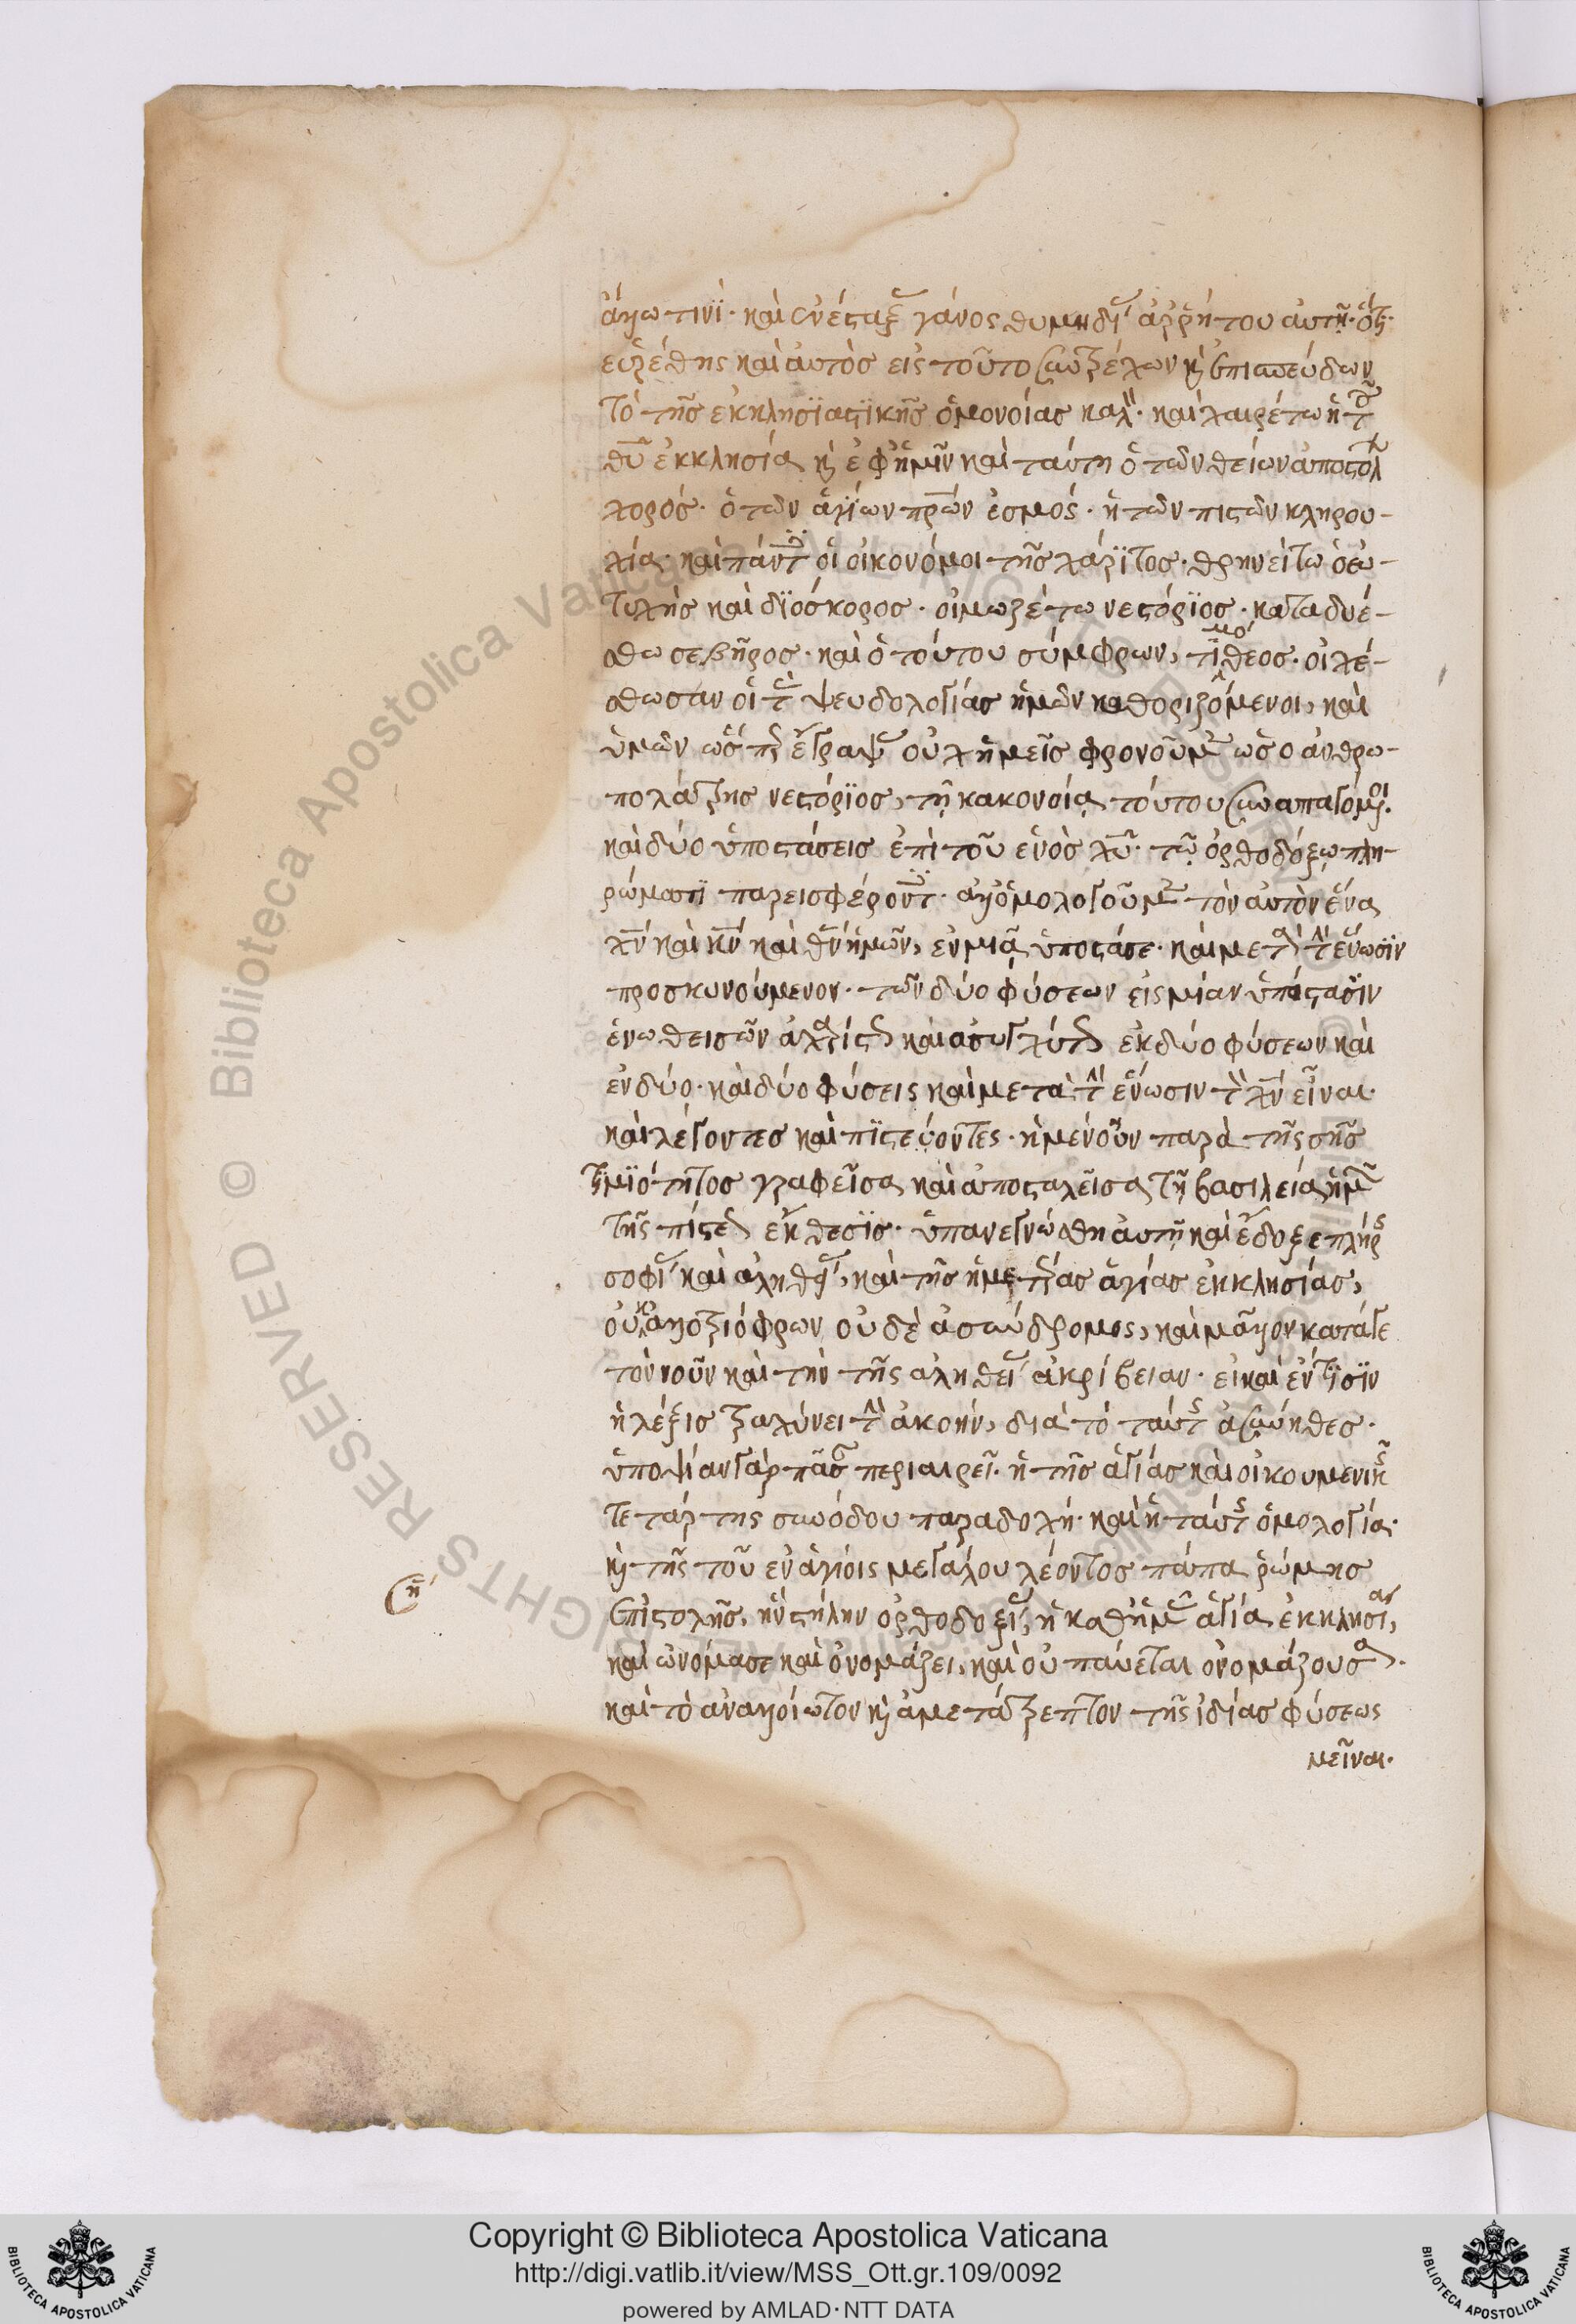 ἄλλω τινί· καὶ ἐνέσταξε γάνος θυμηδίας ἀρρήτου αὐτῆ· ὅτι
εὑρέθης καὶ αὐτὸς εἰς τοῦτο συντρέχων καὶ ἐπισπεύδων
τὸ τῆς ἐκκλησϊαστϊκῆς ὁμονοίας καλόν· καὶ χαιρέτω ἡ τοῦ
θῦ ἐκκλησία, καὶ ἐφ' ἡμῖν καὶ ταύτη ὁ τῶν θείων ἀποστόλων
χορός· ὁ τῶν ἁγίων πρων ἑσμός· ἡ τῶν πιστῶν κληρου-
χία· καὶ πάντες οἱ οἰκονόμοι τῆς χάριτος· θρηνείτω ὁ εὐ-
τυχὴς καὶ δϊόσκορος· οἰμωζέτω νεστόρϊος· καταδυέ-
σθω σεβῆρος· καὶ ὁ τούτου σύμφρων, τϊμόθεος· οἰχέ-
σθωσαν οἱ τὰς ψευδολογίας ἡμῶν καθοριζόμενοι, καὶ
ὑμῶν ὥσπερ ἔγραψας οὐχ ἡμεῖς φρονοῦμεν ὡς ὁ ἀνθρω-
πολάτρης νεστόρϊος, τῇ κακονοίᾳ τούτου συναπαγόμενοι·
καὶ δύο ὑποστάσεις ἐπὶ τοῦ ἑνὸς χῦ· τῷ ὀρθοδόξῳ πλη-
ρώματϊ παρεισφέροντες· ἀλλ' ὁμολογοῦμεν τὸν αὐτὸν ἕνα
χν καὶ κν καὶ θν ἡμῶν, ἐν μιᾷ ὑποστάσει· καὶ μετὰ τὴν ἕνωσϊν
προσκυνούμενον· τῶν δύο φύσεων εἰς μίαν ὑπόστασϊν
ἑνωθεισῶν ἀχωρίστως καὶ ἀσυγχύτως ἐκ δύο φύσεων καὶ
ἐν δύο· καὶ δύο φύσεις καὶ μετὰ τὴν ἕνωσιν τὸν χν εἶναι·
καὶ λέγοντες καὶ πϊστεύοντες· ἡ μὲν οὖν παρὰ τῆς σῆς
τϊμϊότητος γραφεῖσα, καὶ ἀποσταλεῖσα τῇ βασιλείᾳ ἡμῶν
τῆς πίστεως ἔκθεσϊς· ὑπανεγνώσθη αὐτῇ καὶ ἔδοξε πλήρης
σοφίας καὶ ἀληθείας, καὶ τῆς ἡμετέρας ἁγίας ἐκκλησίας,
οὐκ ἀλλοτριόφρων οὐδὲ ἀσύνδρομος, καὶ μᾶλλον κατά γε
τὸν νοῦν καὶ τὴν τῆς ἀληθείας ἀκρίβειαν· εἰ καὶ ἔν τϊσϊν
ἡ λέξις τραχύνει τὴν ἀκοήν, διὰ τὸ ταύτης ἀσύνηθες·
ὑποψίαν γὰρ πᾶσαν περιαιρεῖ· ἡ τῆς ἁγίας καὶ οἰκουμενικῆς
τετάρτης συνόδου παραδοχή· καὶ ἡ ταύτης ὁμολογία·
καὶ τῆς τοῦ ἐν ἁγίοις μεγάλου λέοντος πάπα ῥώμης
ση
ἐπιστολῆς, ἣν στήλην ὀρθοδοξίας, ἡ καθ' ἡμᾶς ἁγία ἐκκλησία,
καὶ ὠνόμασε καὶ ὀνομάζει, καὶ οὐ παύεται ὀνομάζουσα·
καὶ τὸ ἀναλλοίωτον καὶ ἀμετάτρεπτον τῆς ἰδίας φύσεως
μεῖναι·
Copyright © Biblioteca Apostolica Vaticana
http://digi.vatlib.it/view/MSS_Ott.gr.109/0092
powered by AMLAD·NTT DATA